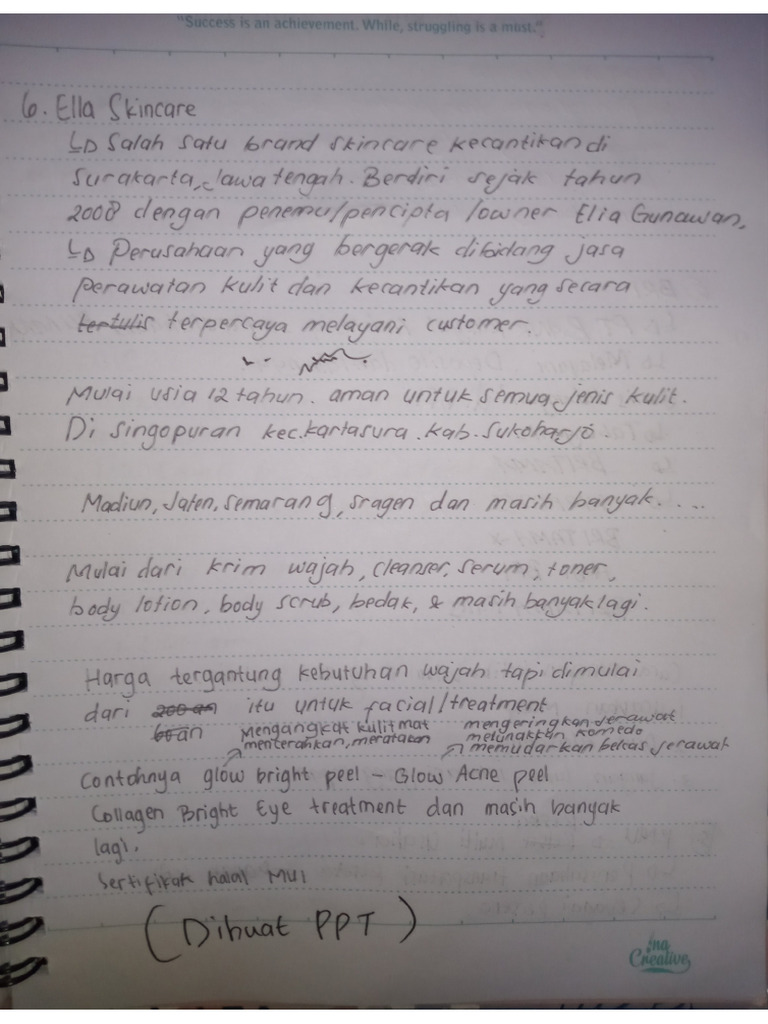 "Success is an achievement. While, struggling is a must."
6. Ella Skincare
↳ Salah satu brand skincare kecantikan di
Surakarta, Jawa tengah. Berdiri sejak tahun
2008 dengan penemu/pencipta /owner Elia Gunawan.
↳ Perusahaan yang bergerak dibidang jasa
perawatan kulit dan kecantikan yang secara
tertulis terpercaya melayani customer.
Mulai usia 12 tahun. aman untuk semua jenis kulit.
Di singopuran kec.kartasura.kab.Sukoharjo.
Madiun, Jaten, Semarang, Sragen dan masih banyak....
Mulai dari krim wajah, cleanser, serum, toner,
body lotion, body scrub, bedak, & masih banyak lagi.
Harga tergantung kebutuhan wajah tapi dimulai
dari 200 an itu untuk facial/treatment
60an Mengangkat kulit mat mengeringkan jerawat
menterahkan, meratakan melunakkan komedo
memudarkan bekas jerawat
Contohnya glow bright peel - Glow Acne peel
Collagen Bright Eye treatment dan masih banyak
lagi.
Sertifikat halal MUI
(Dibuat PPT)
Ina
Creative